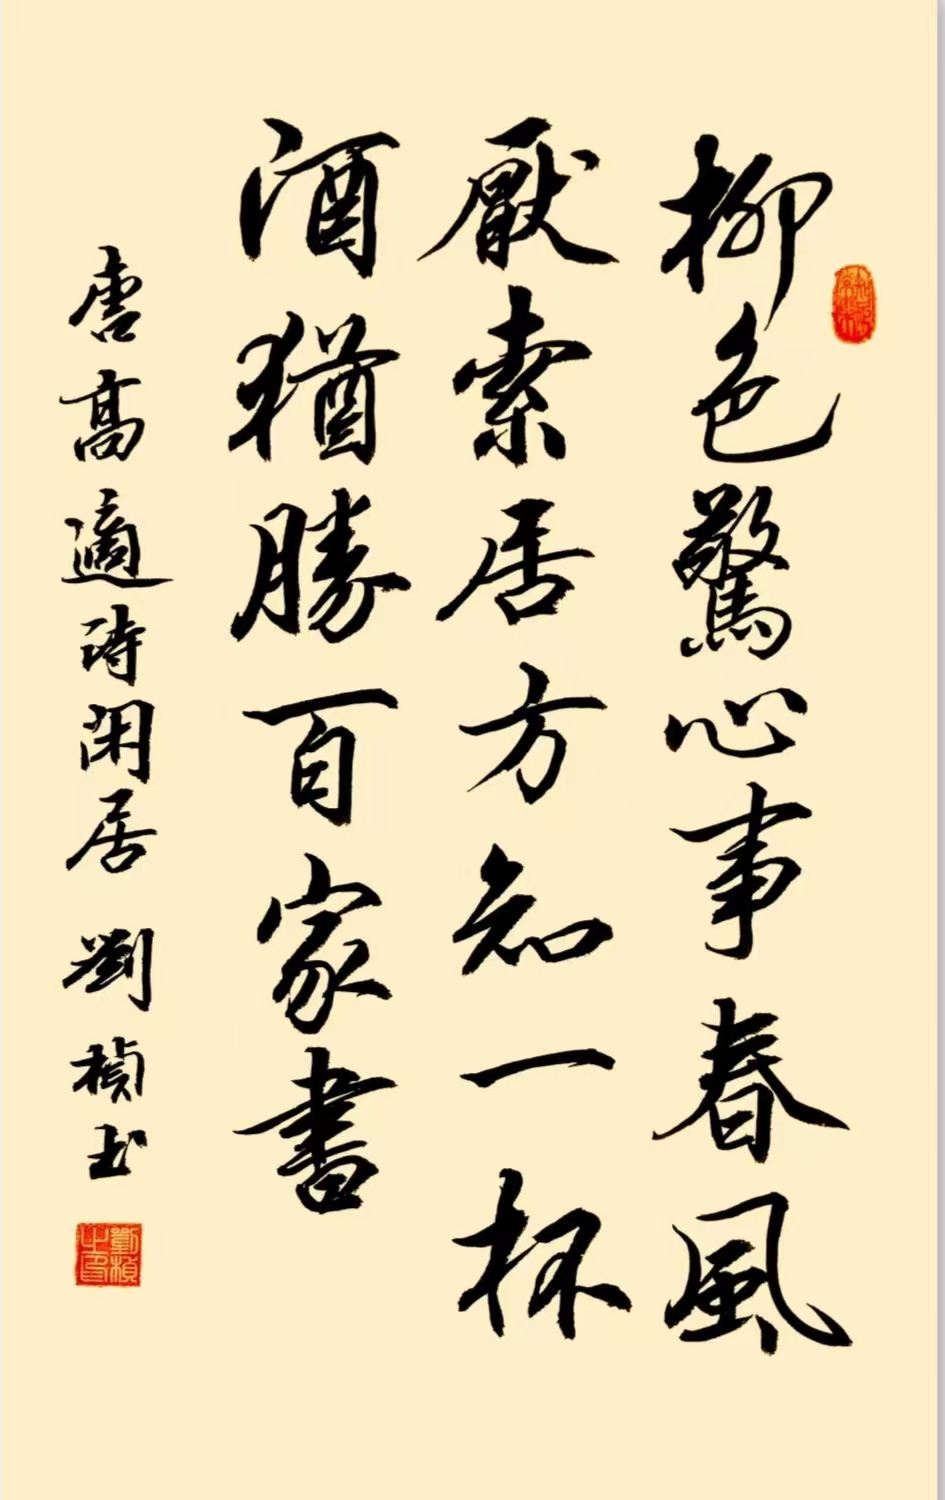 柳色驚心事春風
厭索居方知一杯
酒猶勝百家書
唐高適詩閑居 劉楨书
劉楨之印